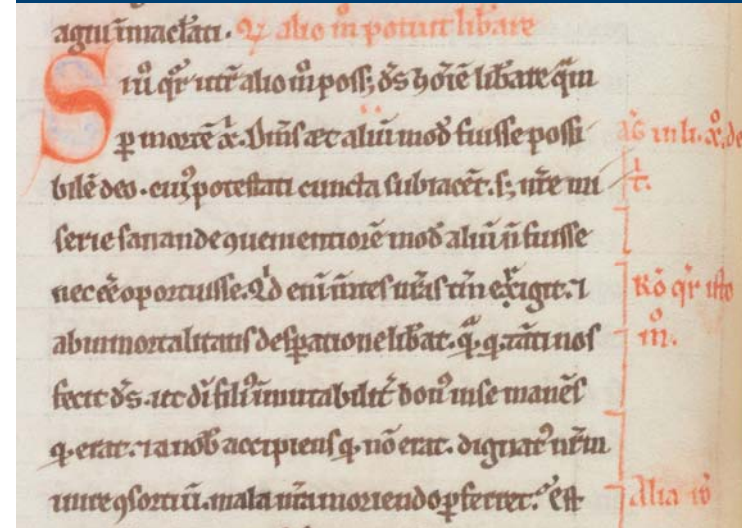 agni īmaclati. Qđ alio m̊ potuit lib̄are
Siũ q̄r̄ ut̄ alio m̊ poss; d̄s hoīē lib̄are q̃m
ꝑ mortē x̄. Dim̄s et aliũ mod̄ fuisse possi
bilē deo. cuiꝰ potestati cuncta subiacēt. s; nr̄e mi
serie sanande ꝯuenientiorē mod̄ aliũ ñ fuisse
nec ēē oportuisse. Qͥd eni m̄tes nr̄as tm̄ erigit. ⁊
ab inmortalitatis desꝑatione lib̄at. q̃. q. tāti nos
fecit d̄s. ut dī filiꝰ īmutabilit̄ bonꝰ in se manēs
q. erat. ⁊ a nob̄ accipiens q. nō erat. dignatꝰ nr̄m
inire ꝯsortiũ. mala nr̄a moriendo ꝑferret. Est
aḡ in li. x̊. de
t̄.
Rō q̄r isto
m̊.
Alia rō